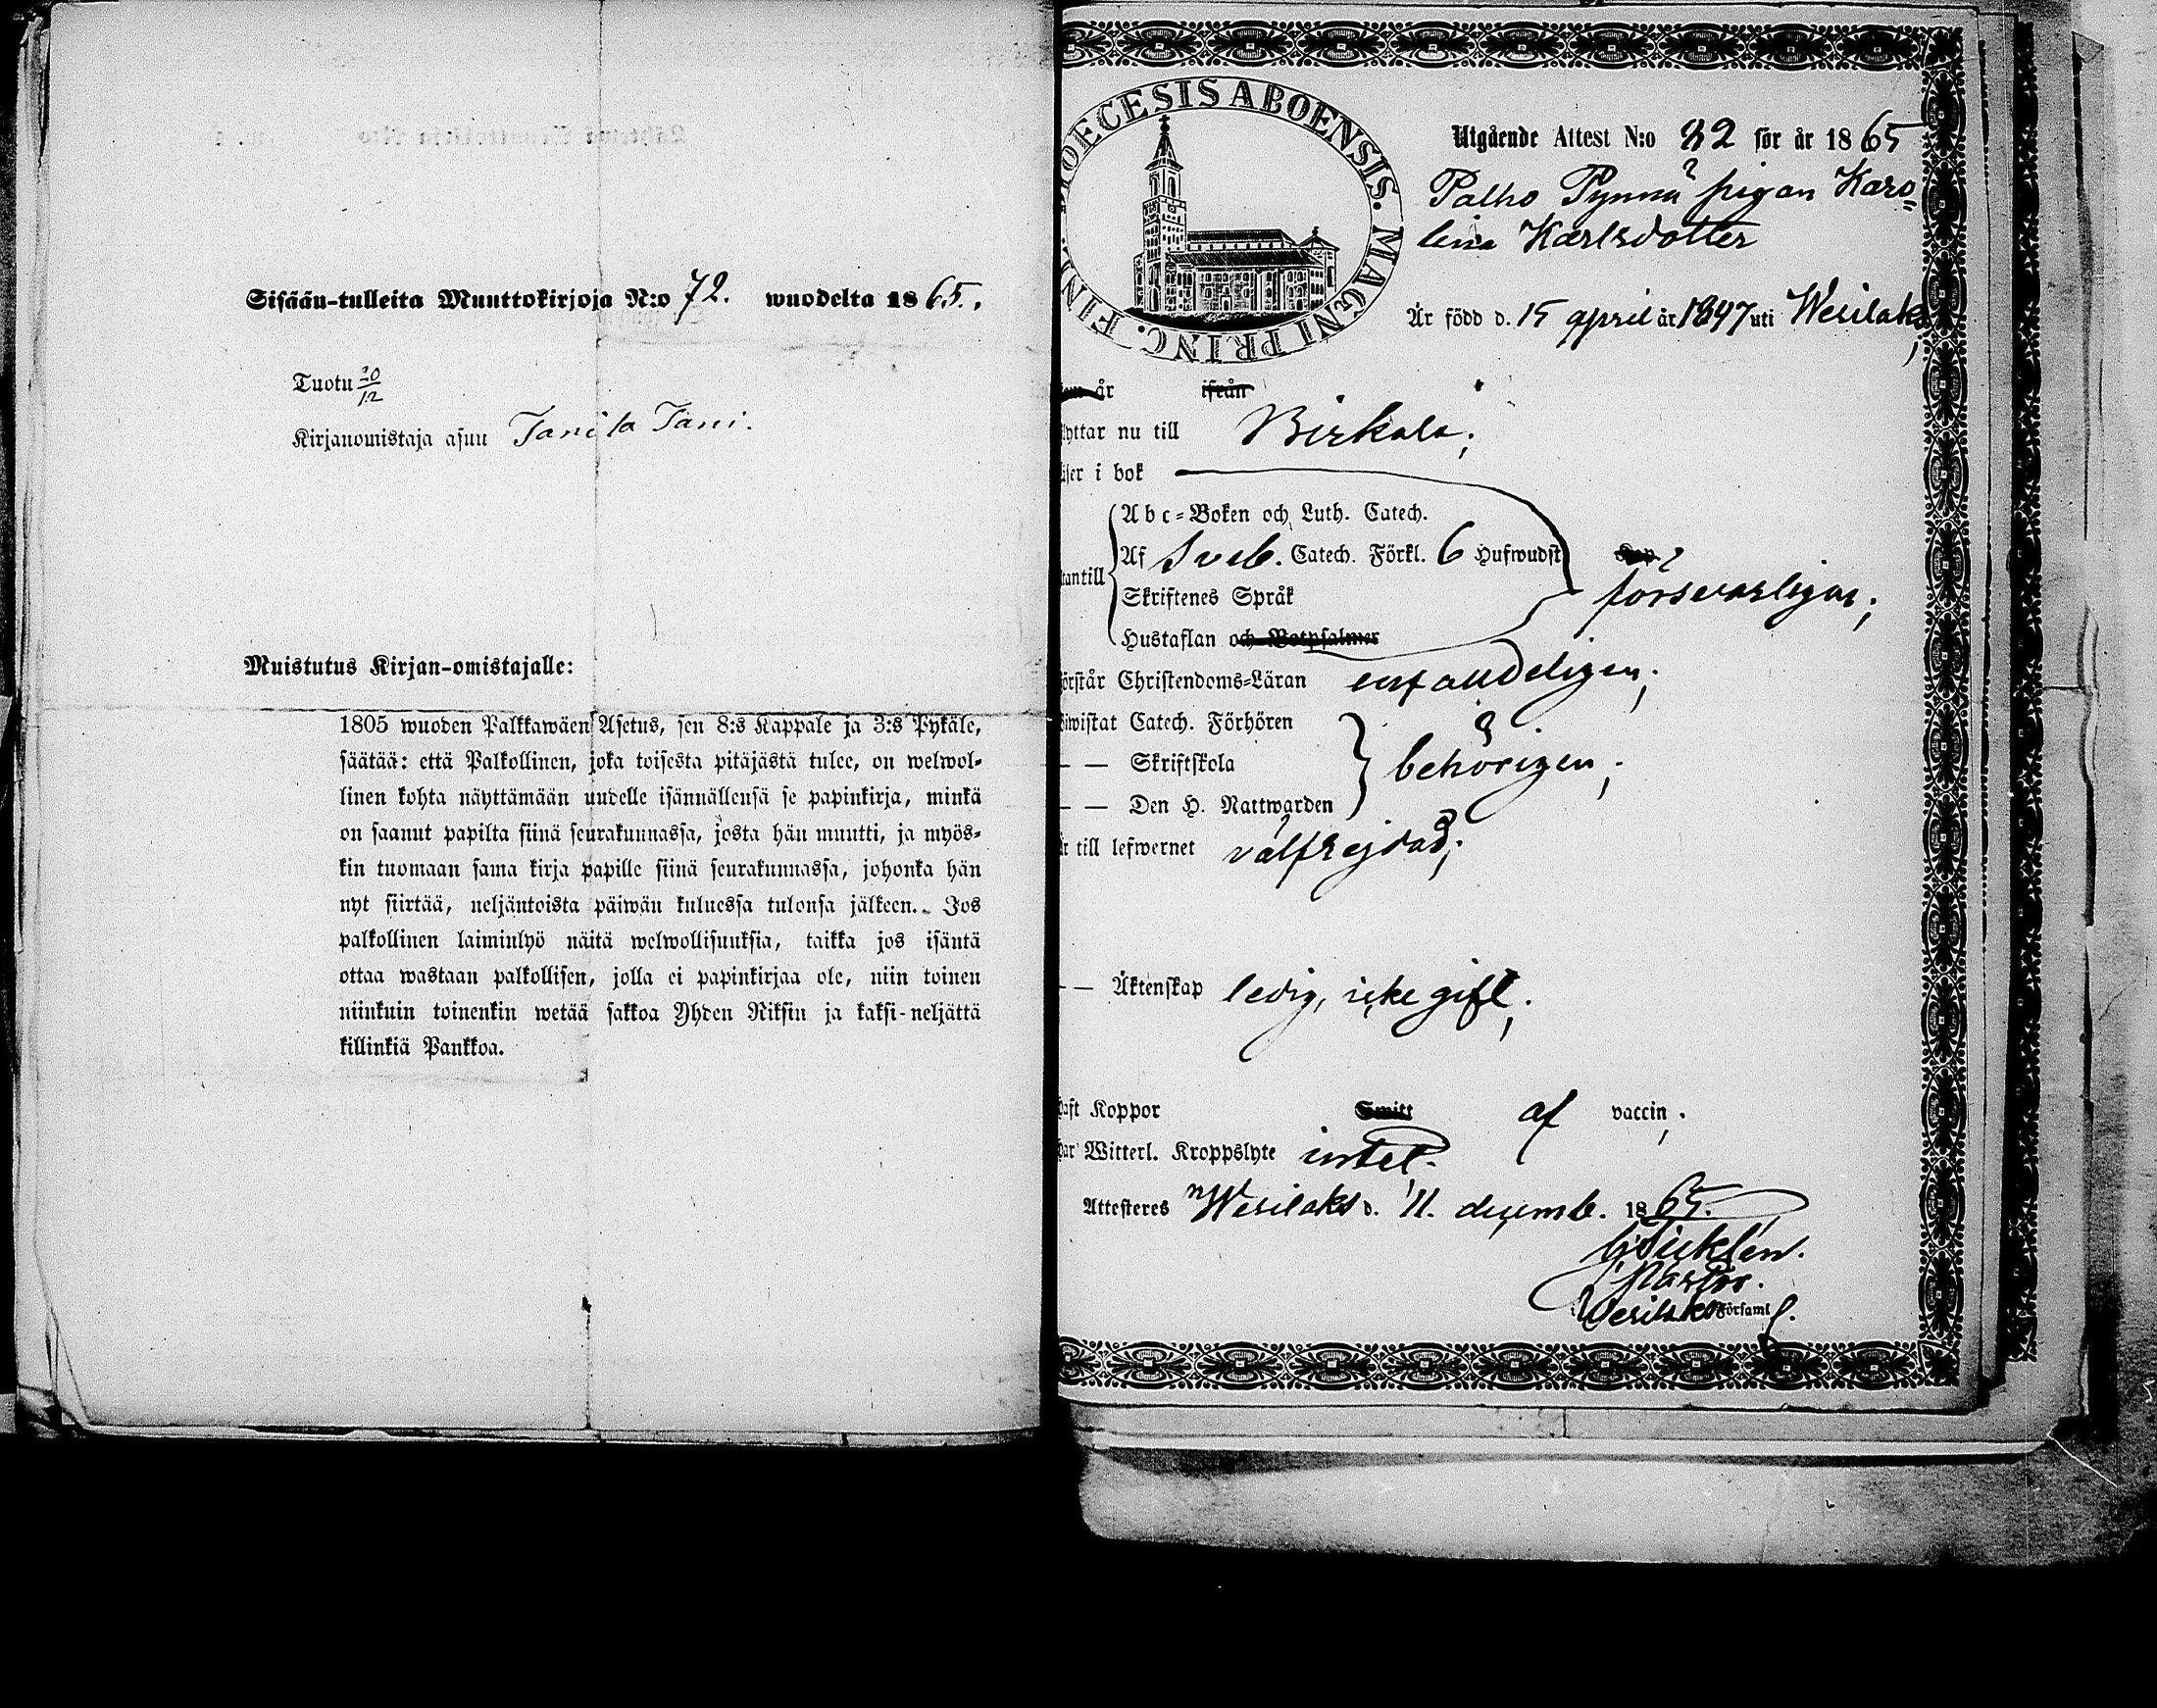 Sisään-tulleita Muuttokirjoja N:o 72. wuodelta 1865.
Tuotu 20/12
Kirjanomistaja asuu Tanila Tani.
Muistutus Kirjan-omistajalle:
1805 wuoden Palkkawäen Asetus, sen 8:s Kappale ja 3:s Pykäle,
säätää: että Palkollinen, joka toisesta pitäjästä tulee, on welwol-
linen kohta näyttämään uudelle isännällensä se papinkirja, minkä
on saanut papilta siinä seurakunnassa, josta hän muutti, ja myös-
kin tuomaan sama kirja papille siinä seurakunnassa, johonka hän
nyt siirtää, neljäntoista päiwän kuluessa tulonsa jälkeen. Jos
palkollinen laiminlyö näitä welwollisuuksia, taikka jos isäntä
ottaa wastaan palkollisen, jolla ei papinkirjaa ole, niin toinen
niinkuin toinenkin wetää sakkoa Yhden Riksin ja kaksi-neljättä
killinkiä Pankkoa.
DIOECESIS ABOENSIS. MAGNI PRINC. FINL.
Utgående Attest N:o 22 för år 1865
Palho Pynnä pigan Karo=
lina Karlsdotter
Är född d. 15 april år 1847 uti Wesilaks,
år ifrån
flyttar nu till Birkala;
läser i bok
Abc-Boken och Luth. Catech.
Af Sveb. Catech. Förkl. 6 Hufwudst. Kap.
utantill
Skriftenes Språk försvarligen;
Hustaflan och Botpsalmer
förstår Christendoms-Läran enfaldeligen;
Biwistat Catech. Förhören
— — Skriftskola behörigen;
— — Den H. Nattwarden
är till lefwernet välfrejdad;
— — Äktenskap ledig, icke gift;
haft Koppor Smitt af vaccin;
har Witterl. Kroppslyte intet.
Attesteres Wesilaks d. 11. decemb. 1865.
Pastor.
i Wesilaks Församl.